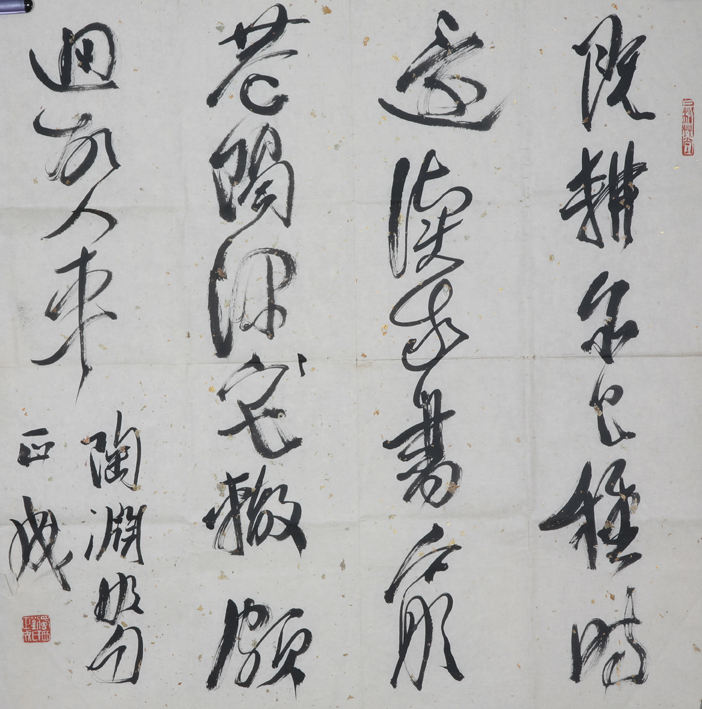 既耕亦已種時
還讀我書窮
巷隔深宅轍頗
迴故人車
陶淵明句
正成